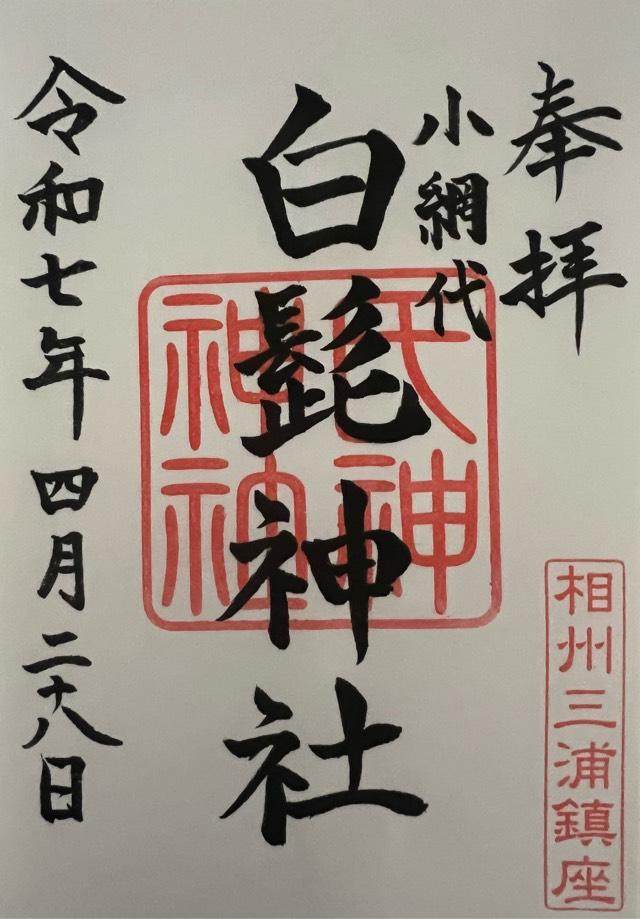 奉拝
小網代
白髭神社
令和七年四月二十八日
相州三浦鎮座